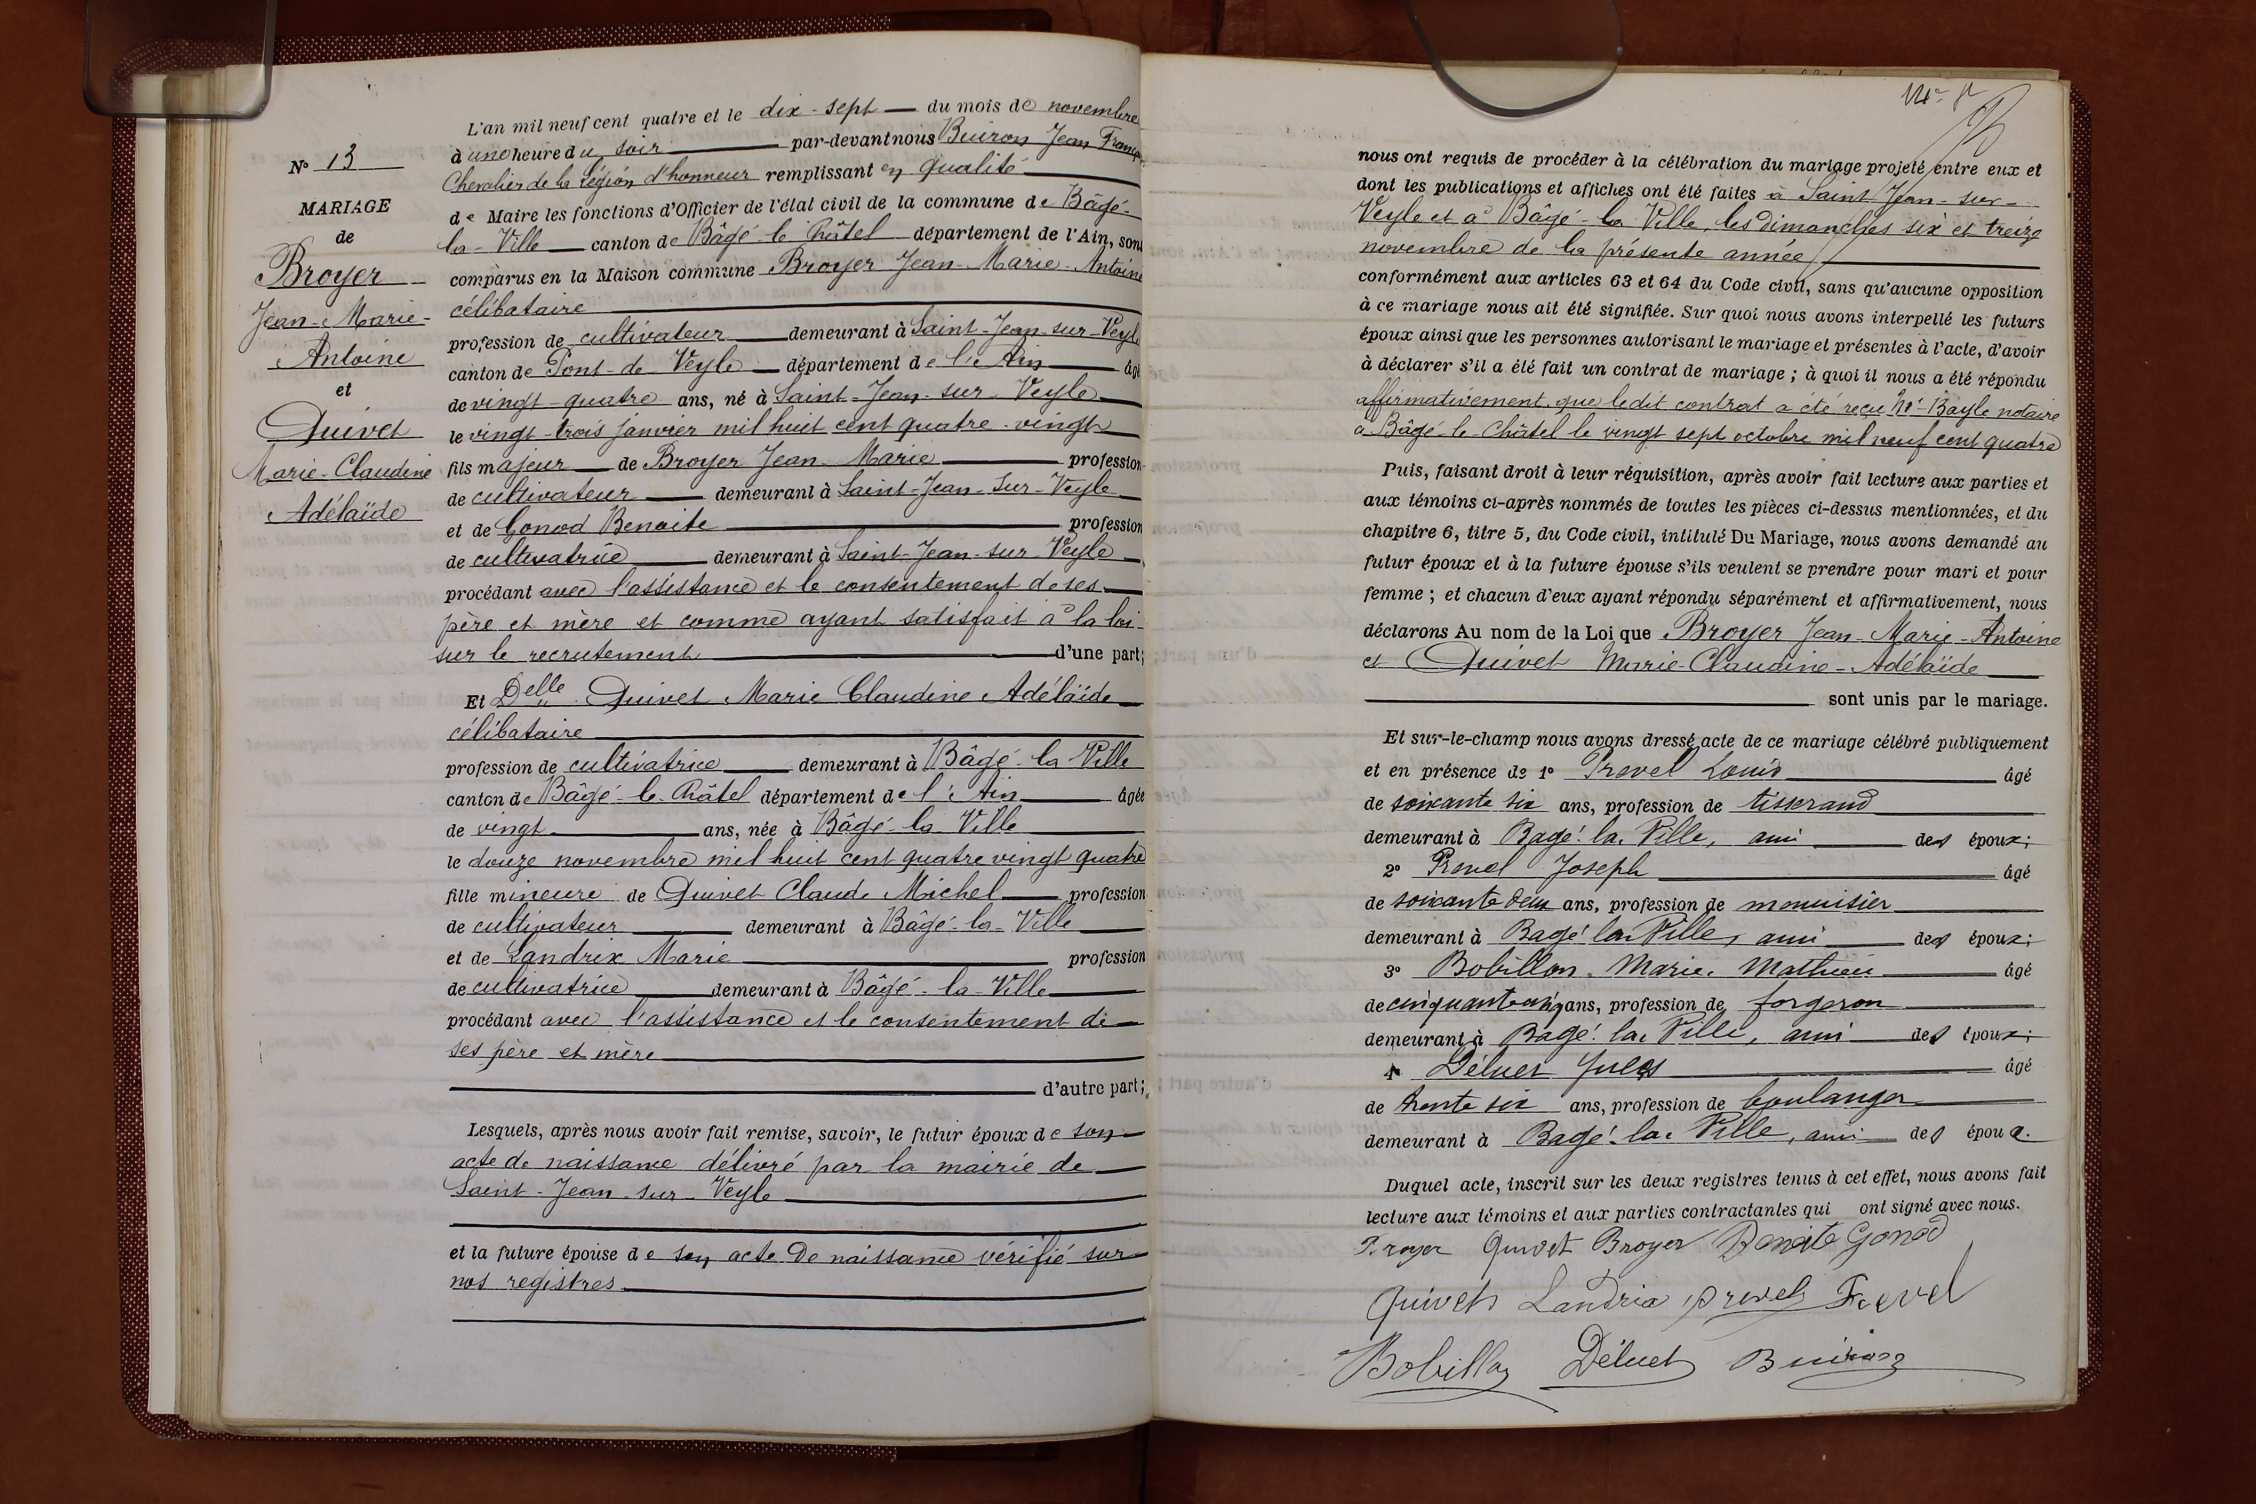 N° 13
MARIAGE
de
Broyer
Jean-Marie-
Antoine
et
Quivet
Marie-Claudine
Adélaïde
L'an mil neuf cent quatre et le dix-sept du mois de novembre
à une heure du soir par-devant nous Buiron Jean François
Chevalier de la Légion d'honneur remplissant en qualité
de Maire les fonctions d'Officier de l'état civil de la commune de Bâgé-
la-Ville canton de Bâgé-le-Châtel département de l'Ain, sont
comparus en la Maison commune Broyer Jean-Marie-Antoine
célibataire
profession de cultivateur demeurant à Saint-Jean-sur-Veyle
canton de Pont-de-Veyle département de l'Ain âgé
de vingt-quatre ans, né à Saint-Jean-sur-Veyle
le vingt-trois janvier mil huit cent quatre-vingt
fils majeur de Broyer Jean-Marie profession
de cultivateur demeurant à Saint-Jean-sur-Veyle
et de Gonod Benoite profession
de cultivatrice demeurant à Saint-Jean-sur-Veyle
procédant avec l'assistance et le consentement de ses
père et mère et comme ayant satisfait à la loi
sur le recrutement d'une part;
Et Delle Quivet Marie Claudine Adélaïde
célibataire
profession de cultivatrice demeurant à Bâgé-la-Ville
canton de Bâgé-le-Châtel département de l'Ain âgée
de vingt ans, née à Bâgé-la-Ville
le douze novembre mil huit cent quatre vingt quatre
fille mineure de Quivet Claude Michel profession
de cultivateur demeurant à Bâgé-la-Ville
et de Landrix Marie profession
de cultivatrice demeurant à Bâgé-la-Ville
procédant avec l'assistance et le consentement de
ses père et mère
d'autre part;
Lesquels, après nous avoir fait remise, savoir, le futur époux de son
acte de naissance délivré par la mairie de
Saint-Jean-sur-Veyle
et la future épouse de son acte de naissance vérifié sur
nos registres
nous ont requis de procéder à la célébration du mariage projeté entre eux et
dont les publications et affiches ont été faites à Saint Jean-sur-
Veyle et à Bâgé-la Ville, les dimanches six et treize
novembre de la présente année
conformément aux articles 63 et 64 du Code civil, sans qu'aucune opposition
à ce mariage nous ait été signifiée. Sur quoi nous avons interpellé les futurs
époux ainsi que les personnes autorisant le mariage et présentes à l'acte, d'avoir
à déclarer s'il a été fait un contrat de mariage; à quoi il nous a été répondu
affirmativement que ledit contrat a été reçu Me Bayle notaire
à Bâgé-le-Châtel le vingt sept octobre mil neuf cent quatre
Puis, faisant droit à leur réquisition, après avoir fait lecture aux parties et
aux témoins ci-après nommés de toutes les pièces ci-dessus mentionnées, et du
chapitre 6, titre 5, du Code civil, intitulé Du Mariage, nous avons demandé au
futur époux et à la future épouse s'ils veulent se prendre pour mari et pour
femme; et chacun d'eux ayant répondu séparément et affirmativement, nous
déclarons Au nom de la Loi que Broyer Jean-Marie-Antoine
et Quivet Marie-Claudine-Adélaïde
sont unis par le mariage.
Et sur-le-champ nous avons dressé acte de ce mariage célébré publiquement
et en présence de 1° Prevel Louis âgé
de soixante six ans, profession de tisserand
demeurant à Bagé-la-Ville, ami des époux;
2° Prevel Joseph âgé
de soixante deux ans, profession de menuisier
demeurant à Bagé-la-Ville, ami des époux;
3° Bobillon Marie Mathieu âgé
de ans, profession de forgeron
demeurant à Bagé-la-Ville, ami des époux;
4° Déluet Jules âgé
de trente six ans, profession de boulanger
demeurant à Bagé-la-Ville, ami des époux.
Duquel acte, inscrit sur les deux registres tenus à cet effet, nous avons fait
lecture aux témoins et aux parties contractantes qui ont signé avec nous.
Broyer Quivet Broyer Benoite Gonod
Quivet Landrix prevel Prevel
Bobillon Déluet Buiron